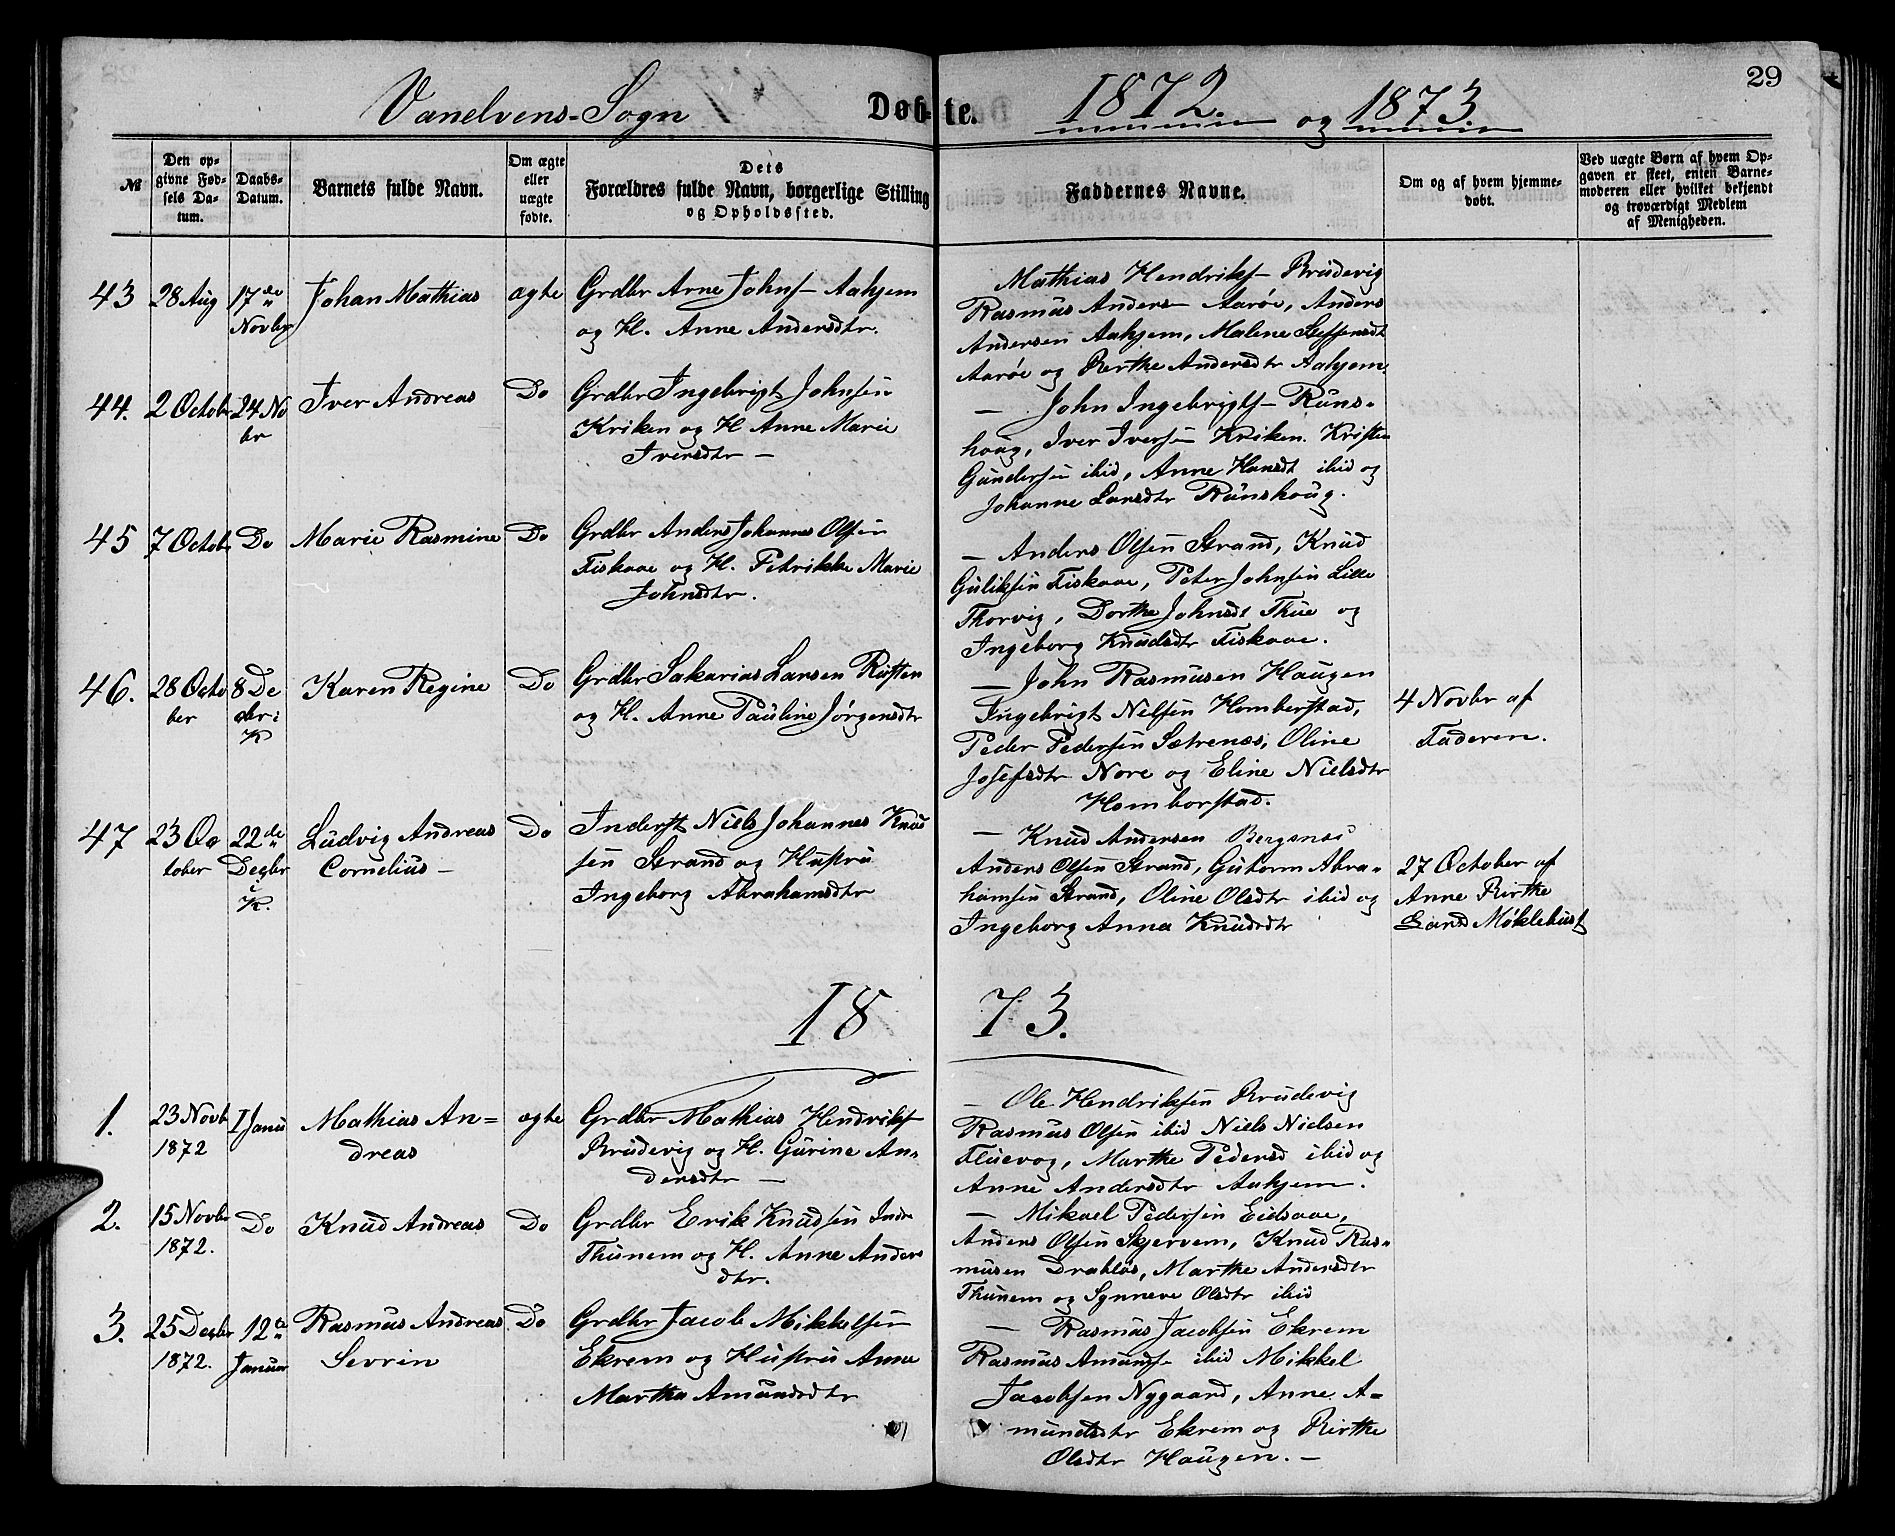 29
Vanelvens-Sogn Døbte. 1872. og 1873.
№
Den opgivne Fødsels Datum.
Daabs-Datum.
Barnets fulde Navn.
Om ægte eller uægte fødte.
Dets Forældres fulde Navn, borgerlige Stilling og Opholdssted.
Faddernes Navne.
Om og af hvem hjemmedøbt.
Ved uægte Børn af hvem Opgaven er skeet, enten Barnemoderen eller hvilket bekjendt og troværdigt Medlem af Menigheden.
43 28 Aug 17de Novbr Johan Mathias ægte
Grdbr Arne Johns- Aahjem
og H. Anne Andersdtr.
Mathias Hendriks- Brudevig
Rasmus Anders- Aarøe, Anders
Andersen Aahjem, Malene Steffensdt
Aarøe og Berthe Andersdtr Aahjem.
44. 2 Octobr 24 Nobr Iver Andreas Do
Grdbr Ingebrigt Johnsen
Kriken og H Anne Marie
Iversdtr —
— John Ingebrigts- Runs-
houg, Iver Iversen Kriken. Kristen
Gundersen ibid, Anne Hansdt ibid og
Johanne Larsdtr Runshoug.
45 7 Octobr Do Marie Rasmine Do
Grdbr Anders Johannes Olsen
Fiskaae og H. Petrikke Marie
Johnsdtr.
— Anders Olsen Strand, Knud
Guliksen Fiskaae, Peter Johnsen Lille
Thorvig, Dorthe Johnsdt Thue og
Ingeborg Knudsdtr Fiskaae.
46. 28 October 8 Decbr: K Karen Regine Do
Grdbr Sakarias Larsen Rusten
og H. Anne Pauline Jørgensdtr
— John Rasmusen Haugen
Ingebrigt Nelsen Homberstad,
Peder Pedersen Sætrenes, Oline
Josefsdtr Nore og Eline Nielsdtr
Homborstad.
4 Novbr af
Faderen.
47 23 October 22de Decbr i K. Ludvig Andreas
Cornelius — Do
Inderst Niels Johannes Knud
sen Strand og Hustru
Ingeborg Abrahamsdtr
— Knud Andersen Bergsnes
Anders Olsen Strand, Gutorm Abra-
hamsen Strand, Oline Olsdtr ibid og
Ingeborg Anna Knudsdtr
27 October af
Anne Birthe
Larsd Møklebust
1873.
1. 23 Novb 1872 1 Janu Mathias An=
dreas ægte
Grdbr Mathias Hendriks-
Brudevig og H. Gurine An-
dersdtr —
— Ole Hendriksen Brudevig
Rasmus Olsen ibid Niels Nielsen
Fluevog, Marthe Pedersd ibid og
Anne Andersdtr Aahjem.
2. 15 Novbr 1872. Do Knud Andreas Do
Grdbr Erik Knudsen Indre
Thunem og H. Anne Anders
dtr.
— Mikael Pedersen Eidsaae,
Anders Olsen Skjervem, Knud Ras-
musen Drabløs, Marthe Andersdtr
Thunem og Synneve Olsdtr ibid
3. 25 Decbr 1872. 12te Januar Rasmus Andreas
Sevrin Do
Grdbr Jacob Mikkelsen
Ekrem og Hustru Anne
Martha Amundsdtr
— Rasmus Jacobsen Ekrem
Rasmus Amunds- ibid Mikkel
Jacobsen Nygaard, Anne A-
mundsdtr Ekrem og Birthe
Olsdtr Haugen. —